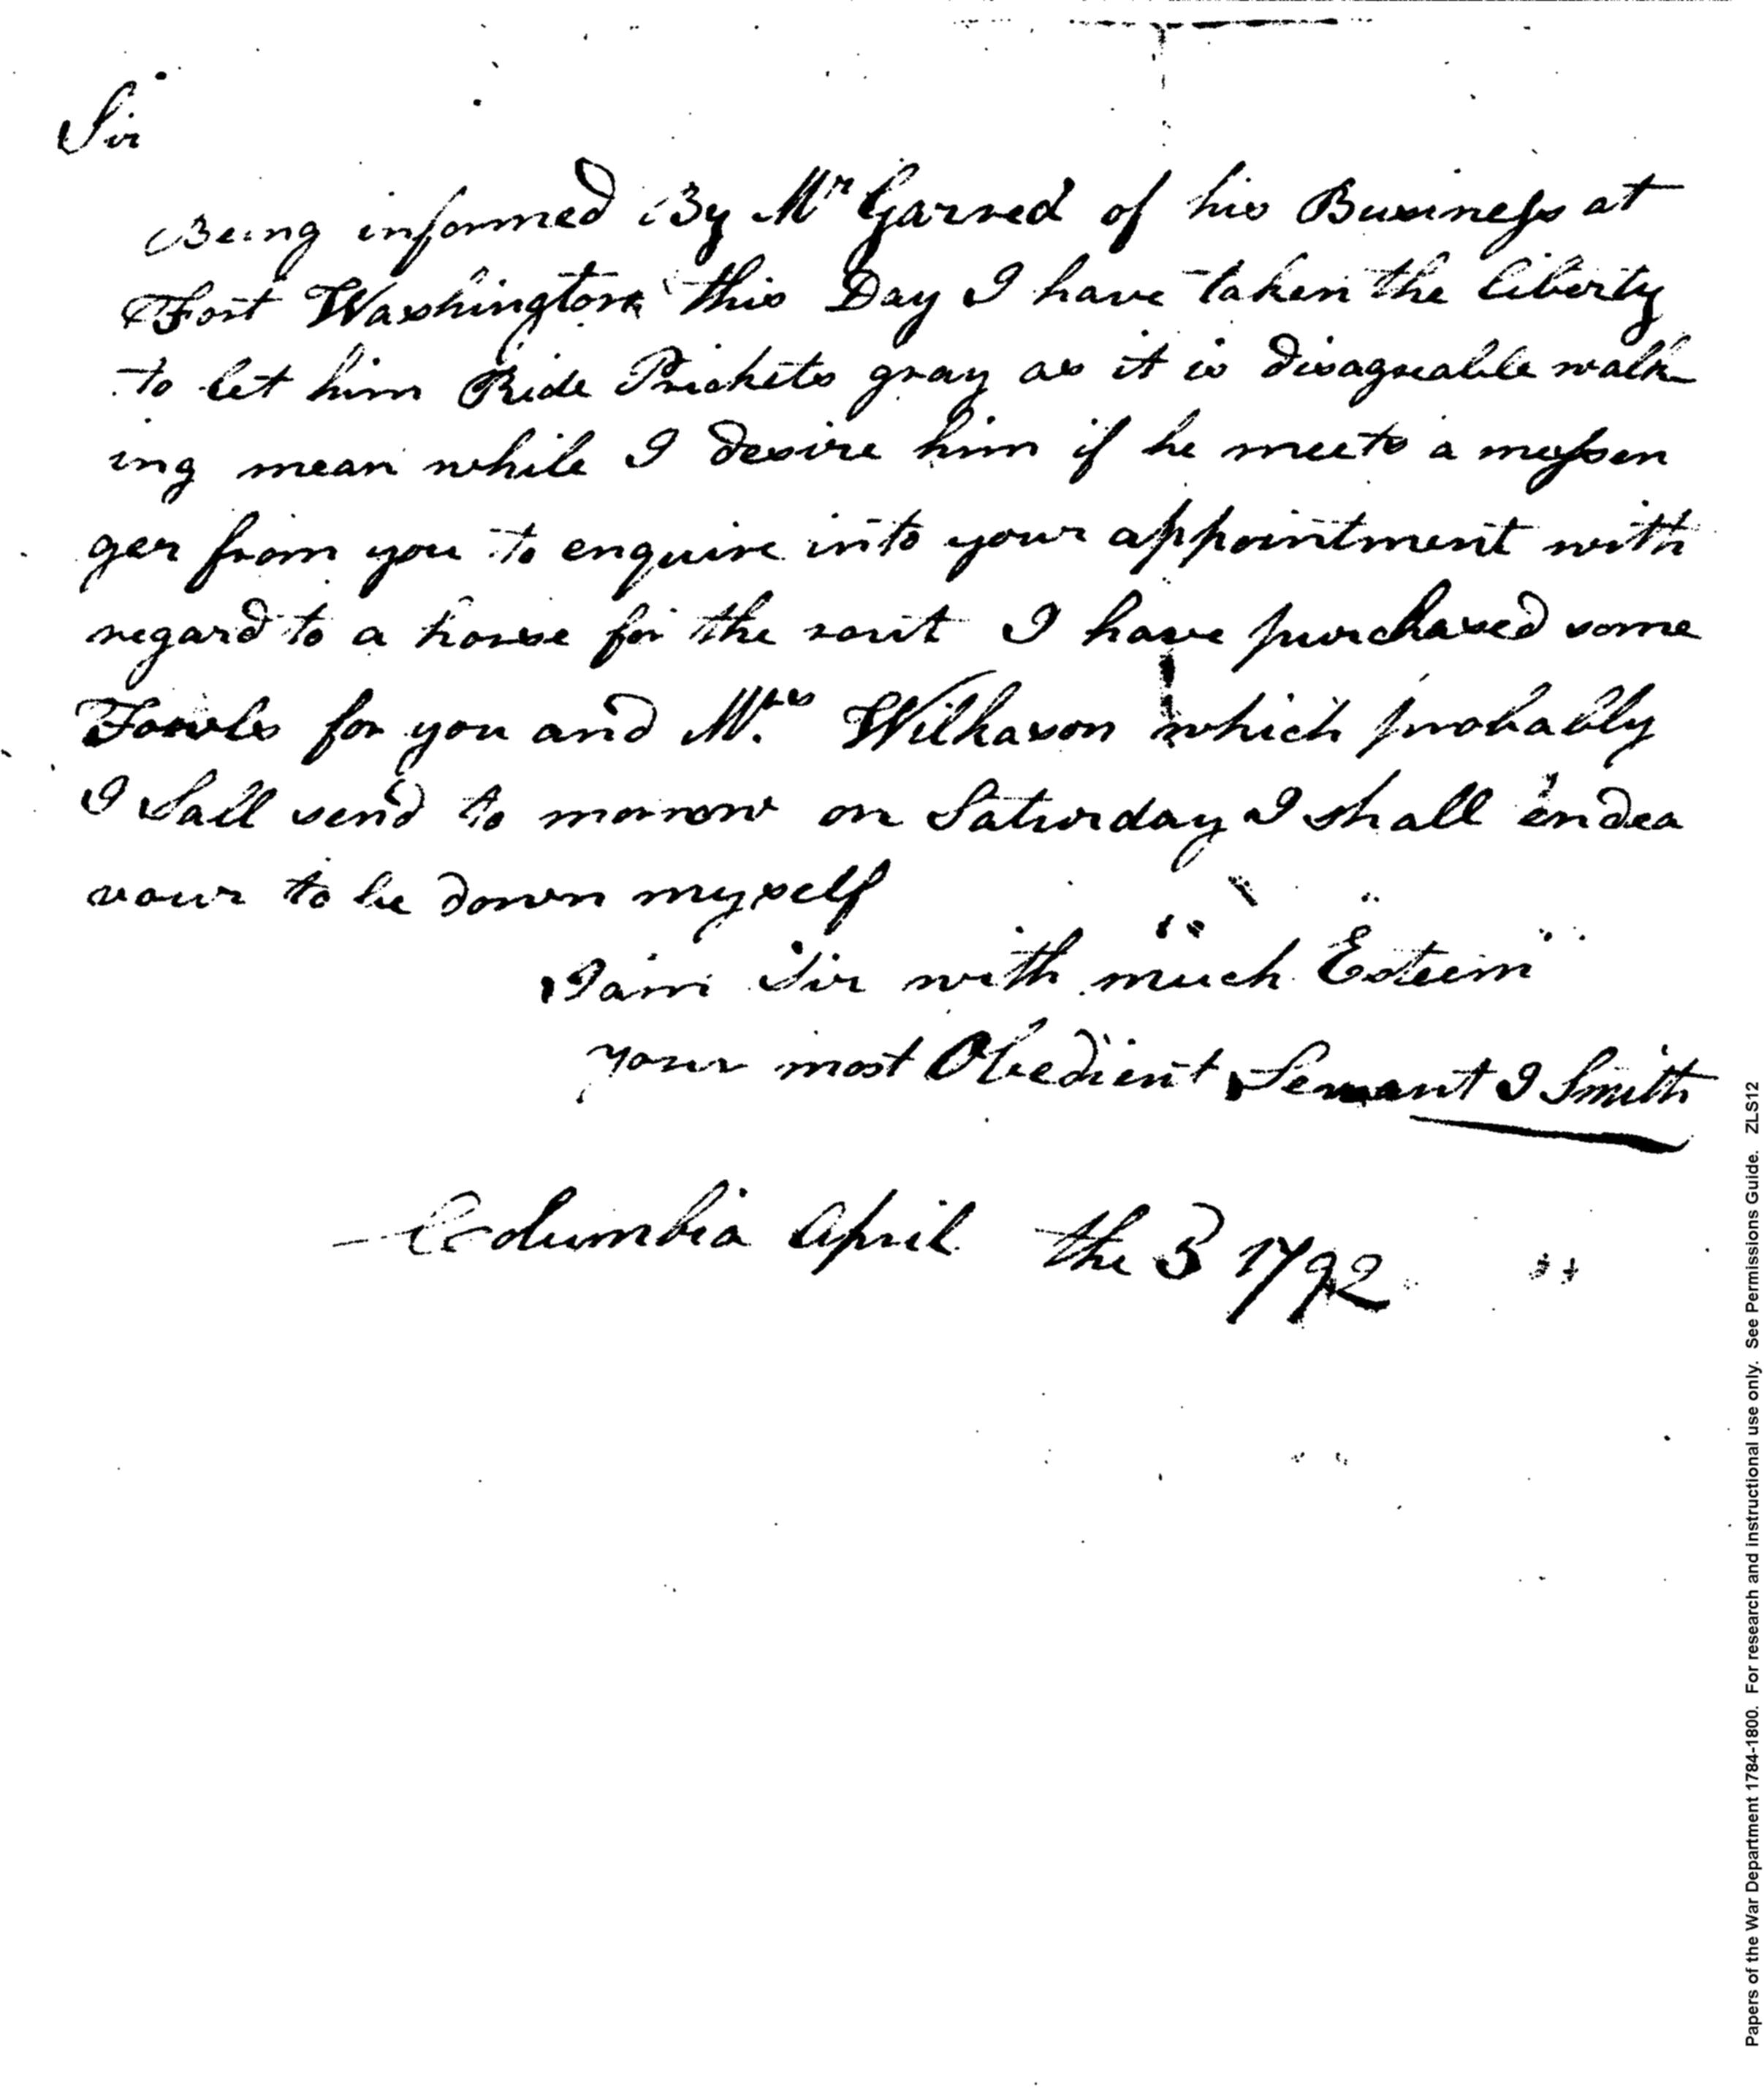 Sir
Being informed By Mr Garred of his Business at
Fort Washington this Day I have taken the liberty
to let him Ride Prickets gray as it is disagreable walk
ing mean while I desire him if he meets a messen
ger from you to enquire into your appointment with
regard to a horse for the rout I have purchased some
Fowls for you and Mrs Wilkason which probably
I Sall send to morrow on Saturday I shall endea
vour to be down myself
I am Sir with much Esteem
your most Obedient Servant I Smith
Columbia April the 5 1792
Papers of the War Department 1784-1800. For research and instructional use only. See Permissions Guide. ZLS12